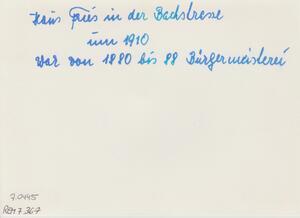 Haus Fries in der Bachstrasse
um 1910
war von 1880 bis 88 Bürgermeisterei
7.0445
REM 7.367